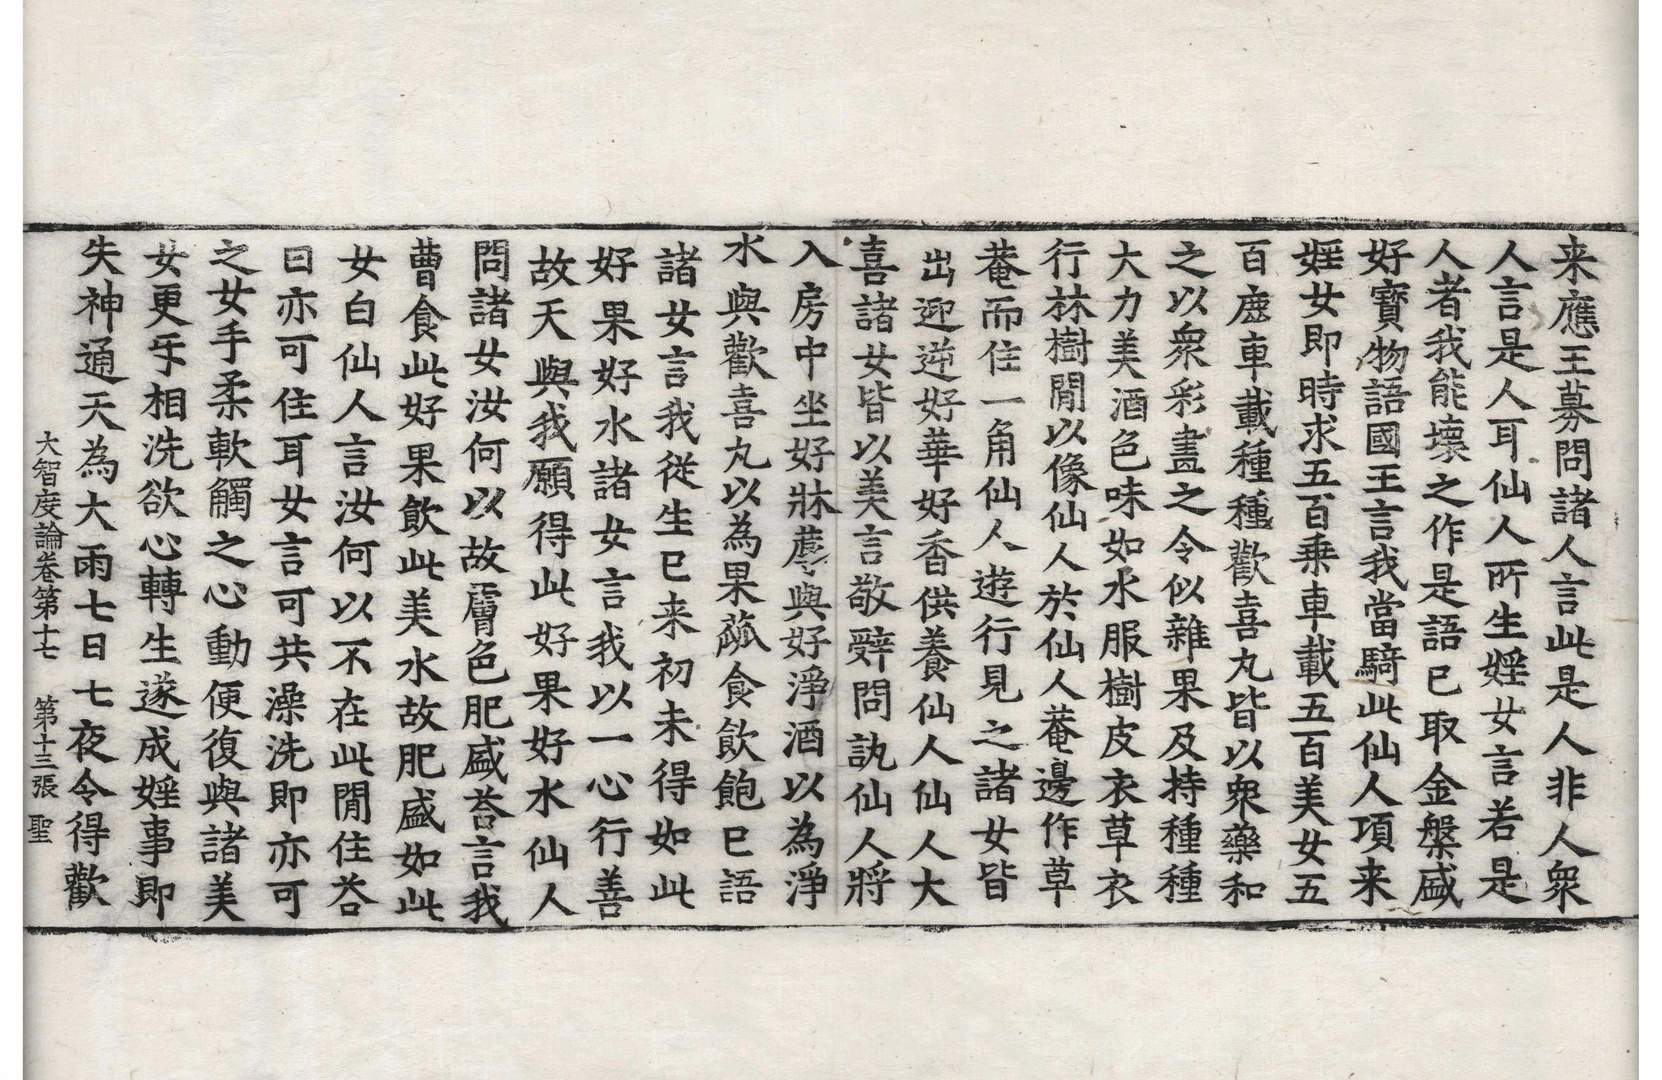 来應王募問諸人言此是人非人衆
人言是人耳仙人所生婬女言若是
人者我能壞之作是語已取金槃盛
好寶物語國王言我當騎此仙人項来
婬女即時求五百乗車載五百美女五
百鹿車載種種歡喜丸皆以衆藥和
之以衆彩畫之令似雜果及持種種
大力美酒色味如水服樹皮衣草衣
行林樹閒以像仙人於仙人菴邊作草
菴而住一角仙人遊行見之諸女皆
出迎逆好華好香供養仙人仙人大
喜諸女皆以美言敬辭問訊仙人將
入房中坐好牀蓐與好淨酒以為淨
水與歡喜丸以為果蓏食飲飽已語
諸女言我從生已来初未得如此
好果好水諸女言我以一心行善
故天與我願得此好果好水仙人
問諸女汝何以故膚色肥盛荅言我
曹食此好果飲此美水故肥盛如此
女白仙人言汝何以不在此閒住荅
曰亦可住耳女言可共澡洗即亦可
之女手柔軟觸之心動便復與諸美
女更㸦相洗欲心轉生遂成婬事即
失神通天為大雨七日七夜令得歡
大智度論卷第十七 第十三張 聖